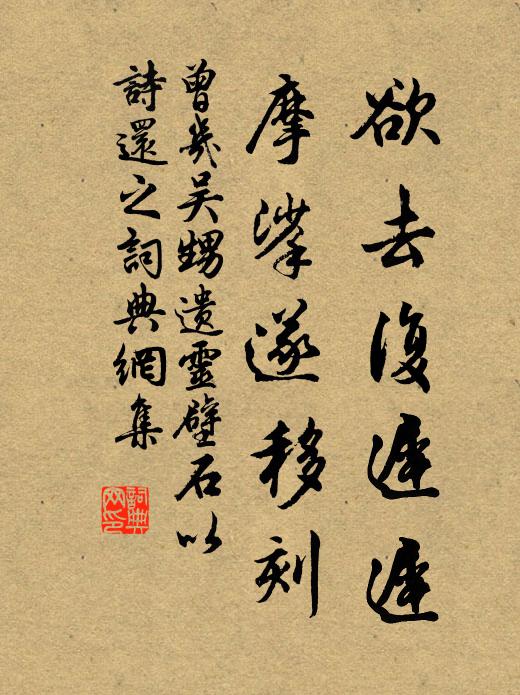 欲去復遲遲
摩挲遂移刻
曾幾吴甥遺靈壁石以
詩還之詞典網集
詞典
网印